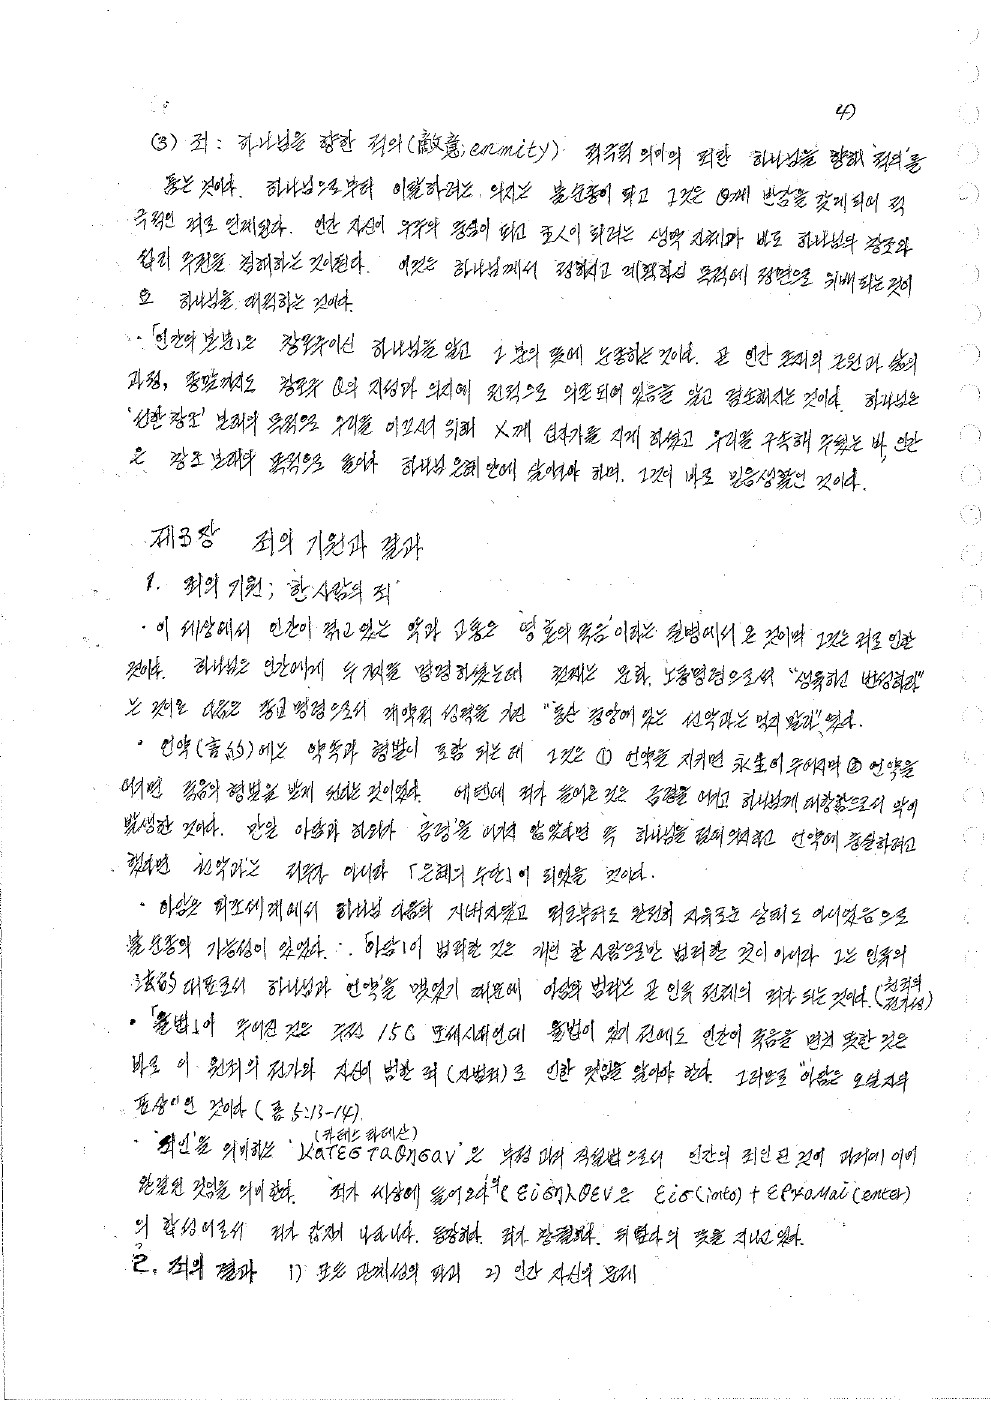 4)
(3) 죄 : 하나님을 향한 적의(敵意; enmity) 적극적 의미의 죄란 하나님을 향해 '적의'를
품는 것이다. 하나님으로부터 이탈하려는 의지는 불순종이 되고 그것은 θ께 반감을 갖게 되어 적
극적인 죄로 연계된다. 인간 자신이 우주의 중심이 되고 주인이 되려는 생각 자체가 바로 하나님의 창조와
섭리 주권을 침해하는 것이 된다. 이것은 하나님께서 정하시고 계획하신 목적에 정면으로 위배되는 것이
요 하나님을 대적하는 것이다.
· 「인간의 본분」은 창조주이신 하나님을 알고 그 분의 뜻에 순종하는 것이다. 곧 인간 존재의 근원과 삶의
과정, 종말까지도 창조주 θ의 지성과 의지에 전적으로 의존되어 있음을 알고 겸손해지는 것이다. 하나님은
'선한 창조' 본래의 목적으로 우리를 이끄시기 위해 X께 십자가를 지게 하셨고 우리를 구속해 주셨는 바, 인간
은 창조 본래의 목적으로 돌아가 하나님 은혜 안에 살아야 하며, 그것이 바로 믿음생활인 것이다.
제3장 죄의 기원과 결과
1. 죄의 기원; '한 사람의 죄'
· 이 세상에서 인간이 겪고 있는 악과 고통은 '영혼의 죽음'이라는 질병에서 온 것이며 그것은 죄로 인한
것이다. 하나님은 인간에게 두 가지를 명령하셨는데 첫째는 문화, 노동명령으로서 "생육하고 번성하라"
는 것이요 다음은 종교 명령으로서 계약적 성격을 가진 "동산 중앙에 있는 선악과는 먹지 말라"였다.
· 언약(言約)에는 약속과 형벌이 포함 되는데 그것은 ① 언약을 지키면 永生이 주어지며 ② 언약을
어기면 죽음의 형벌을 받게 된다는 것이었다. 에덴에 죄가 들어온 것은 금령을 어기고 하나님께 대항함으로서 악이
발생한 것이다. 만일 아담과 하와가 '금령'을 어기지 않았다면 즉 하나님을 전여 의지하고 언약에 충실하려고
했다면 '선악과'는 저주가 아니라 「은혜의 수단」이 되었을 것이다.
· 아담은 피조세계에서 하나님 다음의 지배자였고 죄로부터도 완전히 자유로운 상태도 아니었음으로
불순종의 가능성이 있었다. ∴ 「아담」이 범죄한 것은 개인 한 사람으로만 범죄한 것이 아니라 그는 인류의
法的 대표로서 하나님과 '언약'을 맺었기 때문에 아담의 범죄는 곧 인류 전체의 죄가 되는 것이다. (원죄의 전가성)
· 「율법」이 주어진 것은 주전 15C 모세시대인데 율법이 있기 전에도 인간이 죽음을 면치 못한 것은
바로 이 원죄의 전가와 자신이 범한 죄 (자범죄)로 인한 것임을 알아야 한다. 그러므로 "아담은 오실 자의
표상"인 것이다 (롬 5:13-14).
(카테스타데산)
· '죄인'을 의미하는 'κατεσταθησαν'은 부정과거 직설법으로서 인간의 죄인 된 것이 과거에 이미
완결된 것임을 의미한다. 죄가 세상에 들어오다의 εισηλθεν은 εισ(into) + ερχομαι(enter)
의 합성어로서 죄가 갑자기 나타나다. 등장하다. 죄가 창궐하다. 뒤덮다의 뜻을 지니고 있다.
2. 죄의 결과 1) 모든 관계성의 파괴 2) 인간 자신의 문제